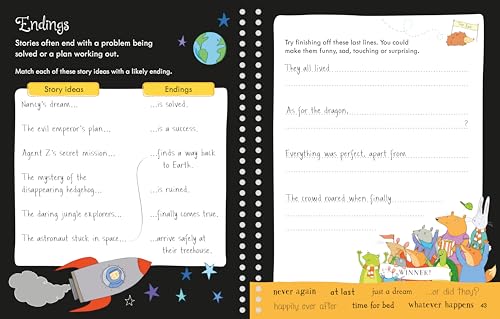 Endings
Stories often end with a problem being
solved or a plan working out.
Match each of these story ideas with a likely ending.
Story ideas
Endings
Nancy's dream...
...is solved.
The evil emperor's plan...
...is a success.
Agent Z's secret mission...
...finds a way back
to Earth.
The mystery of the
disappearing hedgehog...
...is ruined.
The daring jungle explorers...
...finally comes true.
The astronaut stuck in space...
...arrive safely at
their treehouse.
Try finishing off these last lines. You could
make them funny, sad, touching or surprising.
They all lived
As for the dragon,
?
Everything was perfect, apart from
The crowd roared when, finally
WINNER!
never again
at last
just a dream
...or did they?
happily ever after
time for bed
whatever happens
43